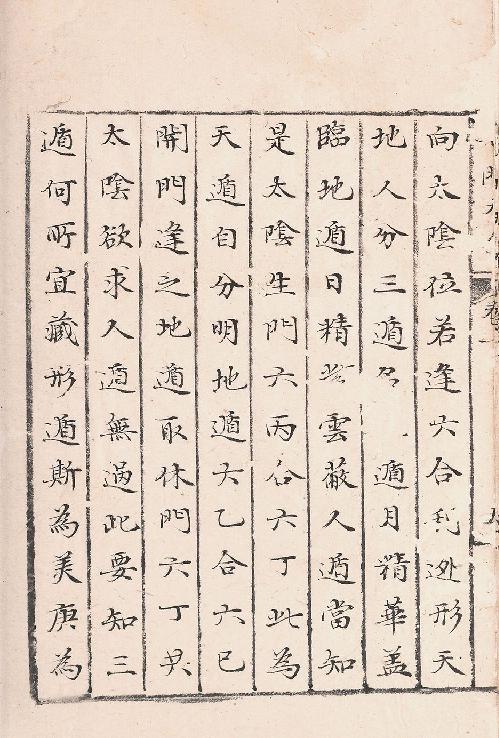 向太陰位若逢六合利逃形天
地人分三遁名 遁月精華盖
臨地遁日精紫雲蔽人遁當知
是太陰生門六丙合六丁此為
天遁自分明地遁六乙合六己
開門逢之地遁取休門六丁共
太陰欲求人遁無過此要知三
遁何所宜藏形遁斯為美庚為